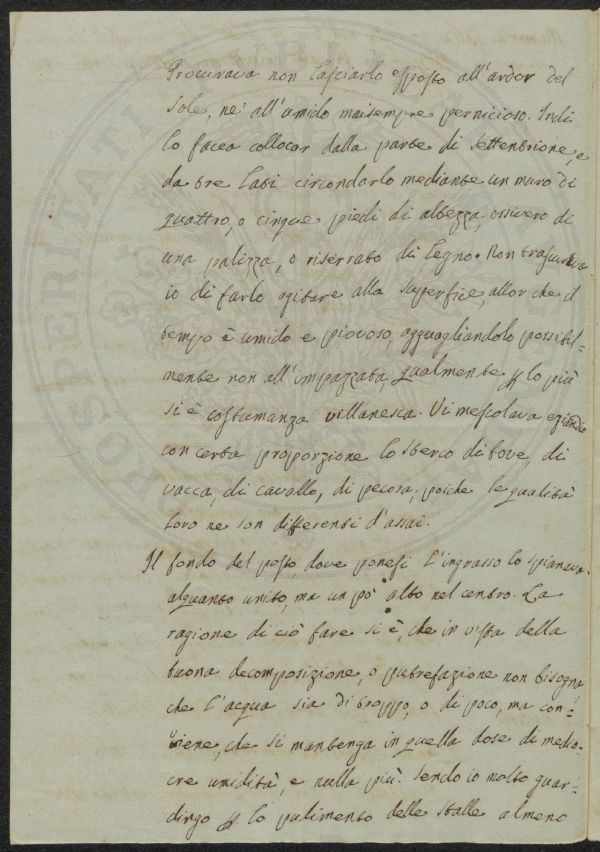 Procurava non lasciarlo esposto all'ardor del
Sole, ne' all'umido maisempre pernicioso. Indi
lo facea collocar dalla parte di settentrione, e
da tre lati circondarlo mediante un muro di
quattro, o cinque piedi di altezza, ossivero di
una palizza, o riserrato di legno. Non trascurava
io di farlo agitare alla superficie, allor che il
tempo è umido e piovoso, agguagliandolo possibil=
mente non all'impazzata, qualmente p lo più
si è costumanza villanesca. Vi mescolava eziandio
con certa proporzione lo sterco di bove, di
vacca, di cavallo, di pecora; poiche le qualità
loro ne son differenti d'assai.
Il fondo del posto, dove ponesi l'ingrasso lo spianava
alquanto unito, ma un pò alto nel centro. La
ragione di ciò fare si è, che in vista della
buona decomposizione, o putrefazione non bisogna
che l'acqua sia di troppo, o di poco, ma con=
viene, che si mantenga in quella dose di medio
cre umidità, e nulla più. Sendo io molto guar=
dingo p lo pulimento delle stalle almeno
PROSPERITATI